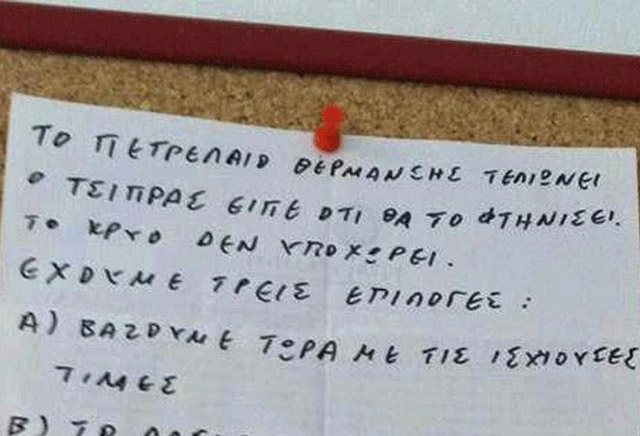 ΤΟ ΠΕΤΡΕΛΑΙΟ ΘΕΡΜΑΝΣΗΣ ΤΕΛΙΩΝΕΙ
Ο ΤΣΙΠΡΑΣ ΕΙΠΕ ΟΤΙ ΘΑ ΤΟ ΦΤΗΝΙΣΕΙ.
ΤΟ ΚΡΥΟ ΔΕΝ ΥΠΟΧΩΡΕΙ.
ΕΧΟΥΜΕ ΤΡΕΙΣ ΕΠΙΛΟΓΕΣ :
Α) ΒΑΖΟΥΜΕ ΤΩΡΑ ΜΕ ΤΙΣ ΙΣΧΙΟΥΣΕΣ
ΤΙΜΕΣ
Β) ΤΟ